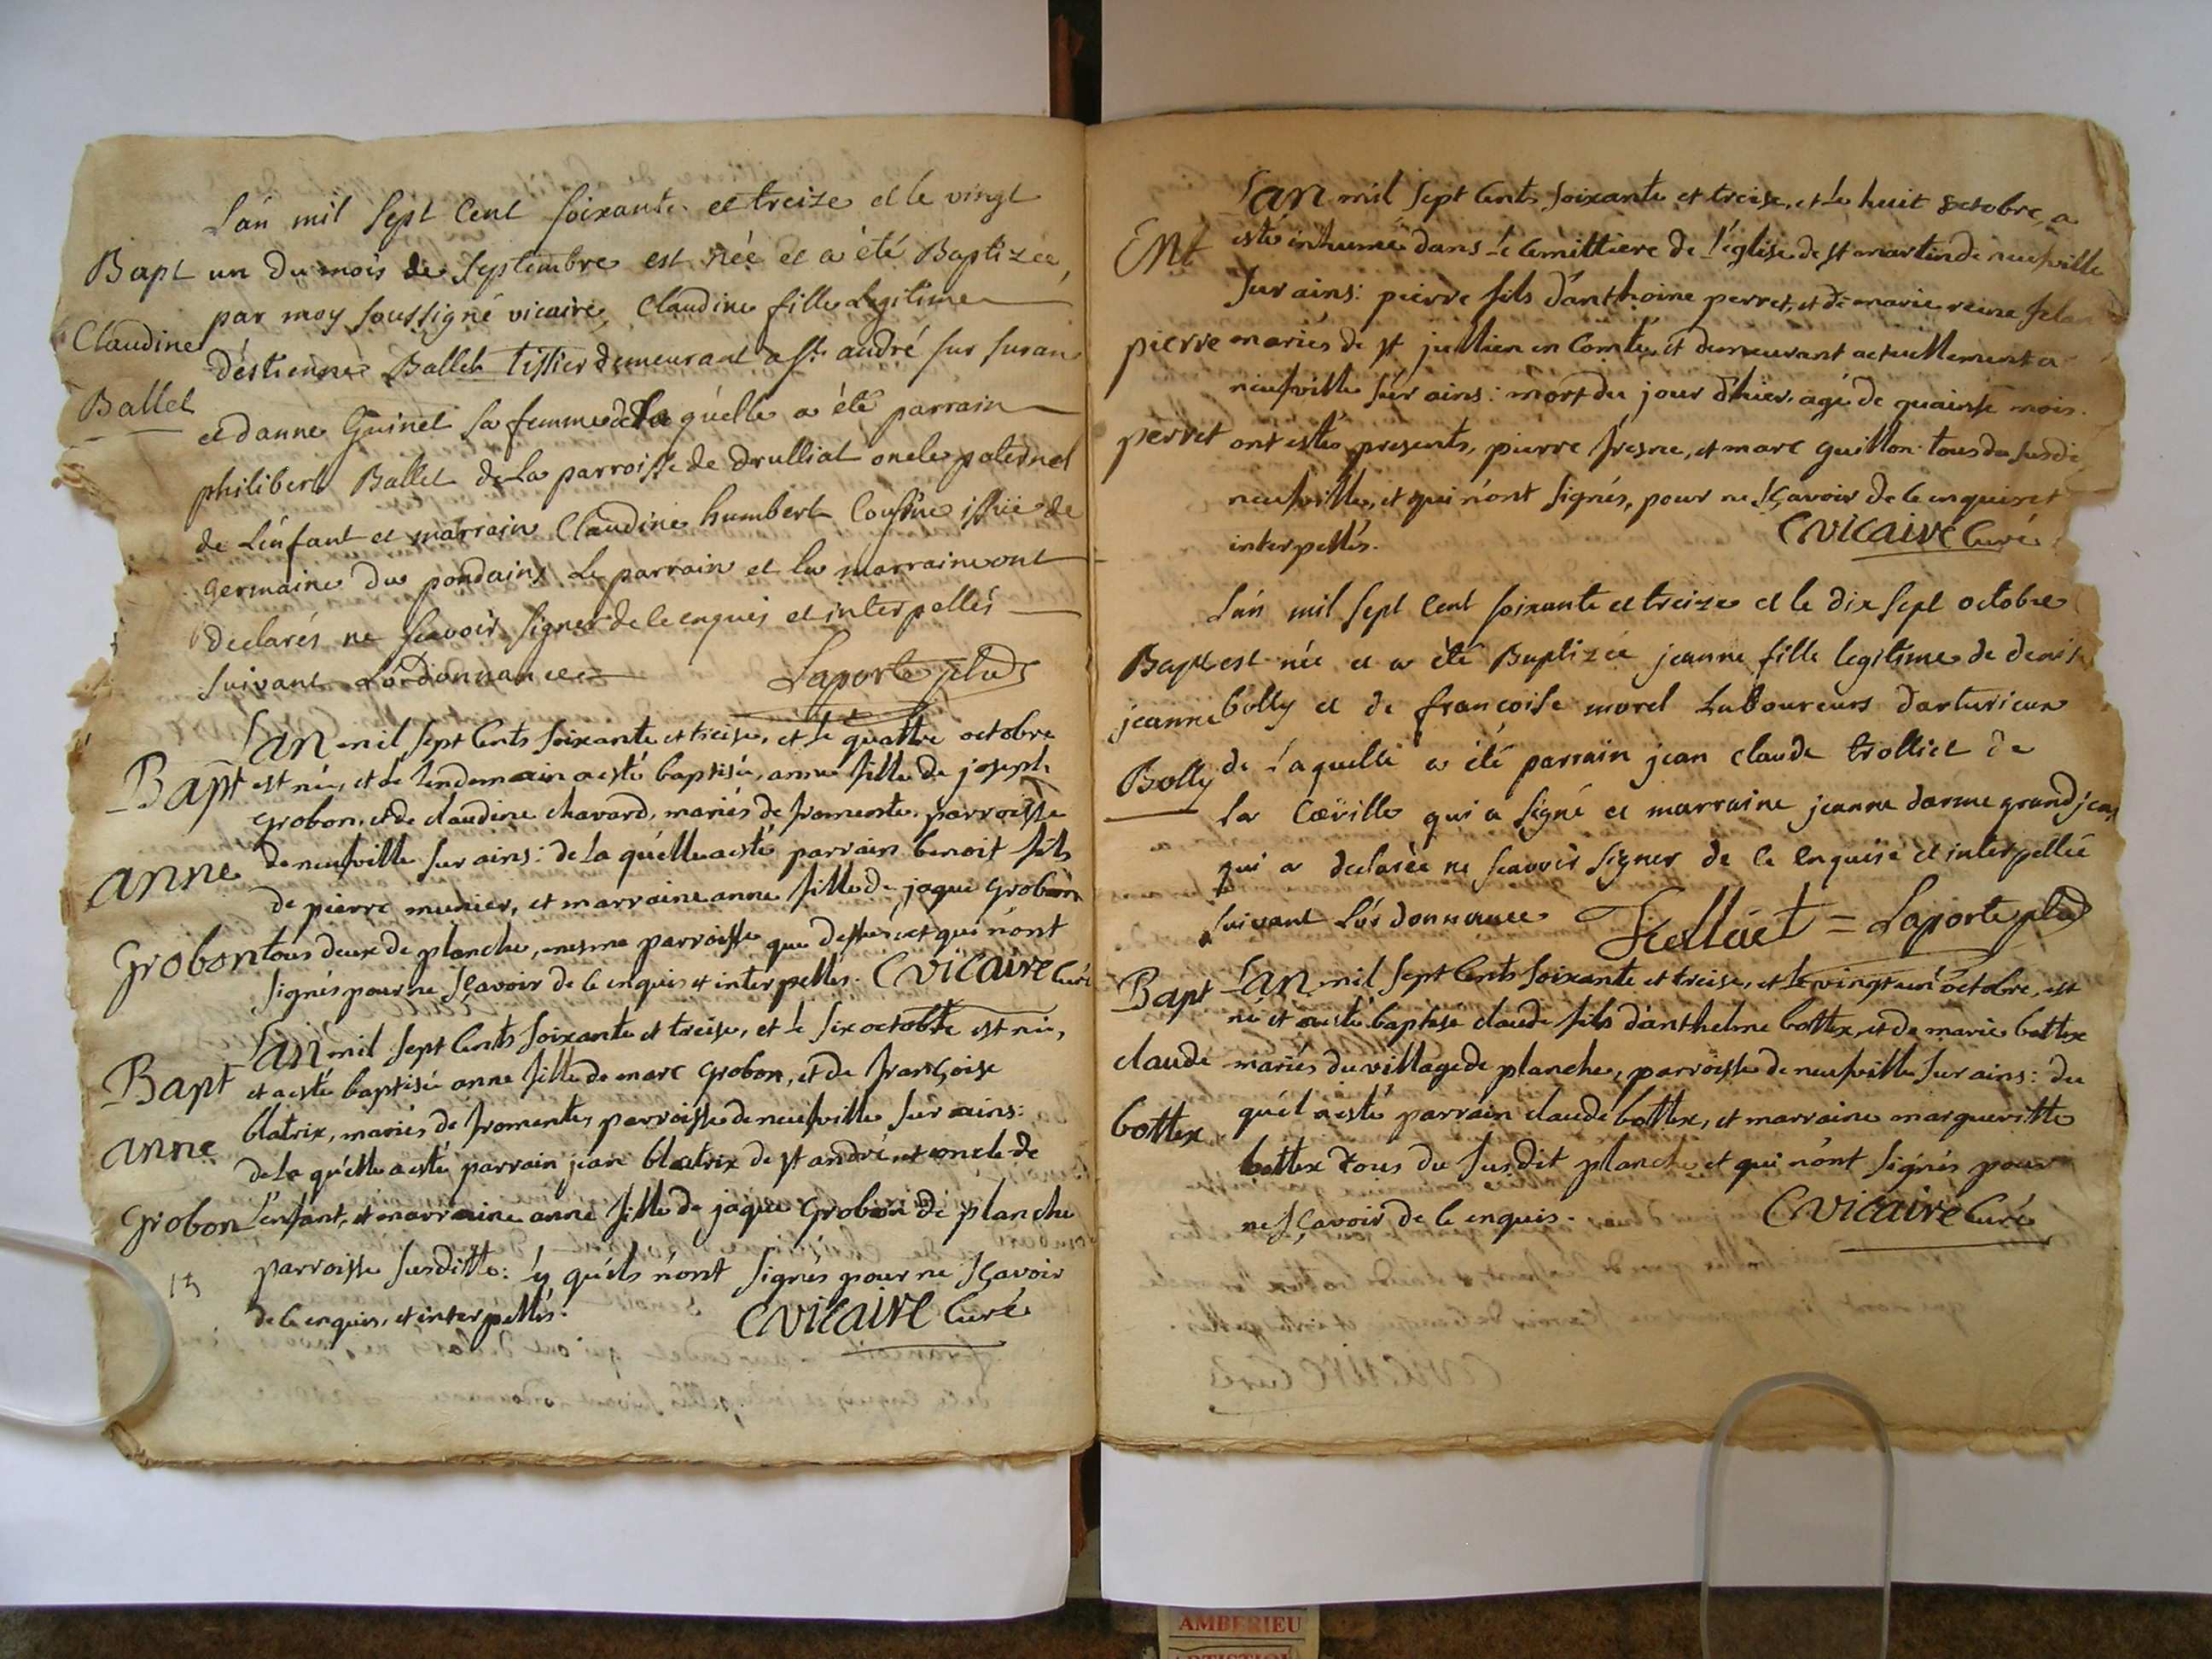 L'an mil Sept Cent Soixante et treize et le vingt
Bapt un du mois de Septembre est née et a été Baptizée,
par moy soussigné vicaire, Claudine fille Legitime
Claudine
d'estienne Ballet tissier demeurant a st. andré sur suran
Ballet
et d'anne Guinet sa femme de la quelle a été parrain
philibert Ballet de la parroisse de drulliat oncle paternel
de L'enfant et marraine Claudine humbert Cousine issüe de
germaine du pondain, Le parrain et la marraine ont
declarés ne scavoir signer de ce enquis et interpellés
suivant L'ordonnance Laporte
L'an mil sept cents soixante et treise, et le quattre octobre
Bapt est née, et le lendemain a esté baptisée, anne fille de joseph
grobon, et de claudine chavard, mariés de fromente, parroisse
de neufville sur ains: de la quelle a esté parrain benoit fils
anne
de pierre munier, et marraine anne fille de jaque grobon
Grobon tous deux de planche, mesme parroisse que dessus, et qui n'ont
signés pour ne sçavoir de ce enquis et interpellés. CVicaire Curé
L'an mil sept cents soixante et treise, et le six octobre est née,
Bapt et a esté baptisée anne fille de marc grobon, et de françoise
blatrix, mariés de fromente, parroisse de neufville sur ains:
anne
de la quelle a esté parrain jean blatrix de st andré, et oncle de
Grobon l'enfant, et marraine anne fille de jaque Grobon de planche
parroisse susditte: y qu'ils n'ont signés pour ne sçavoir
de ce enquis, et interpellés. CVicaire Curé
L'an mil sept cents soixante et treise, et le huit octobre, a
Ent esté inhumé dans le cemittiere de l'église de st martin de neufville
sur ains: pierre fils d'anthoine perret, et de marie reine
pierre mariés de st jullien en Comté, et demeurant actuellement a
neufville sur ains: mort du jour d'hier agé de quainse mois.
perret ont estés presents, pierre fresne, et marc guillon tous du susdi
neufville, et qui n'ont signés, pour ne sçavoir de ce enquis et
interpellés. CVicaire Curé
L'an mil Sept Cent soixante et treize et le dix sept octobre
Bapt est née et a été Baptizée jeanne fille legitime de denis
jeanne bolly et de françoise morel Laboureurs d'arturieux
Bolly de Laquelle a été parrain jean claude trolliet de
la Coeuille qui a signé et marraine jeanne darme grandjean
qui a declarée ne scavoir signer de ce enquise et interpellée
suivant L'ordonnance Trolliet = Laporte
Bapt L'an mil sept cents soixante et treise, et le vingt un octobre, est
né et a esté baptisé claude fils d'anthelme bottex, et de marie bottex
claude mariés du village de planche, parroisse de neufville sur ains: du
quel a esté parrain claude bottex, et marraine margueritte
bottex
bottex tous du susdit planche et qui n'ont signés pour
ne sçavoir de ce enquis. CVicaire Curé
AMBERIEU